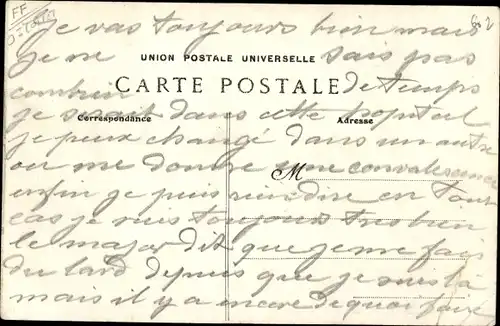 FF
62
je vas toujours bien mais
je ne sais pas
UNION POSTALE UNIVERSELLE
CARTE POSTALE
combien de temps
Correspondance
Adresse
je serait dans cette hopital
je peux changé dans un autre
ou me donné une convalescence
M
enfin je puis rien dire en tout
cas je suis toujours tres bien
le major dit que je me fais
du lard depuis que je suis là
mais il y a encore de quoi faire